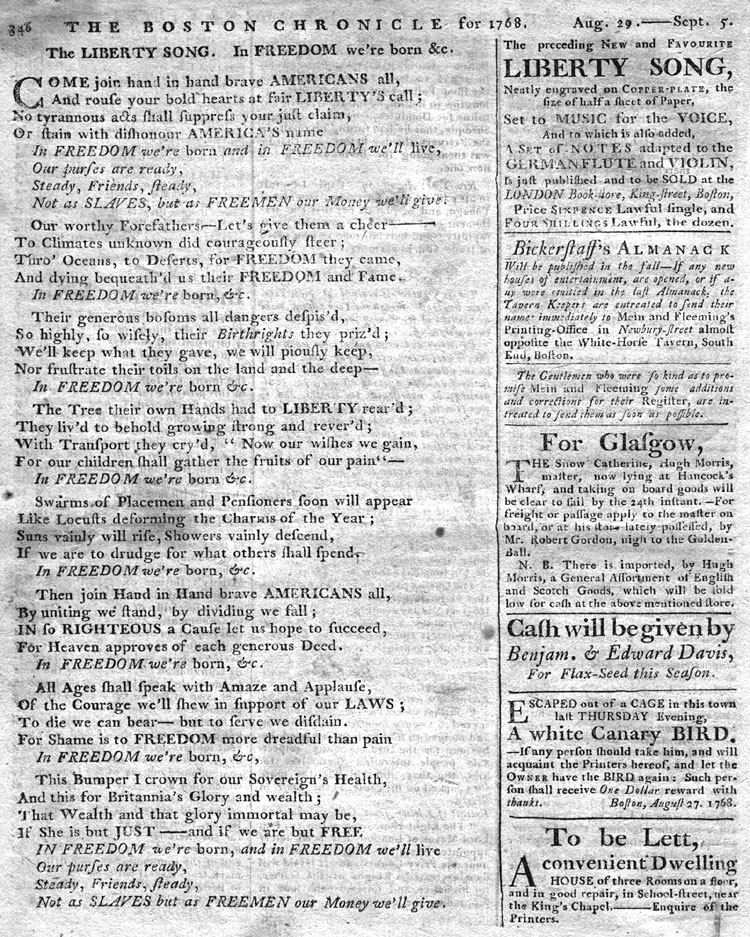 346 THE BOSTON CHRONICLE for 1768. Aug. 29.——Sept. 5.
The LIBERTY SONG. In FREEDOM we're born &c.
COME join hand in hand brave AMERICANS all,
And rouſe your bold hearts at fair LIBERTY'S call;
No tyrannous acts ſhall ſuppreſs your juſt claim,
Or ſtain with diſhonour AMERICA'S name
In FREEDOM we're born and in FREEDOM we'll live,
Our purſes are ready,
Steady, Friends, ſteady,
Not as SLAVES, but as FREEMEN our Money we'll give.
Our worthy Forefathers—Let's give them a cheer———
To Climates unknown did courageouſly ſteer;
Thro' Oceans, to Deſerts, for FREEDOM they came,
And dying bequeath'd us their FREEDOM and Fame.
In FREEDOM we're born, &c.
Their generous boſoms all dangers deſpis'd,
So highly, ſo wiſely, their Birthrights they priz'd;
We'll keep what they gave, we will piouſly keep,
Nor fruſtrate their toils on the land and the deep—
In FREEDOM we're born &c.
The Tree their own Hands had to LIBERTY rear'd;
They liv'd to behold growing ſtrong and rever'd;
With Tranſport they cry'd, “ Now our wiſhes we gain,
For our children ſhall gather the fruits of our pain“—
In FREEDOM we're born &c.
Swarms of Placemen and Penſioners ſoon will appear
Like Locuſts deforming the Charms of the Year;
Suns vainly will riſe, Showers vainly deſcend,
If we are to drudge for what others ſhall ſpend.
In FREEDOM we're born, &c.
Then join Hand in Hand brave AMERICANS all,
By uniting we ſtand, by dividing we fall;
IN ſo RIGHTEOUS a Cauſe let us hope to ſucceed,
For Heaven approves of each generous Deed.
In FREEDOM we're born, &c.
All Ages ſhall ſpeak with Amaze and Applauſe,
Of the Courage we'll ſhew in ſupport of our LAWS;
To die we can bear— but to ſerve we diſdain.
For Shame is to FREEDOM more dreadful than pain
In FREEDOM we're born, &c,
This Bumper I crown for our Sovereign's Health,
And this for Britannia's Glory and wealth;
That Wealth and that glory immortal may be,
If She is but JUST ——and if we are but FREE
IN FREEDOM we're born, and in FREEDOM we'll live
Our purſes are ready,
Steady, Friends, ſteady,
Not as SLAVES but as FREEMEN our Money we'll give.
The preceding NEW and FAVOURITE
LIBERTY SONG,
Neatly engraved on COPPER-PLATE, the
ſize of half a ſheet of Paper,
Set to MUSIC for the VOICE,
And to which is alſo added,
A SET of NOTES adapted to the
GERMAN FLUTE and VIOLIN,
Is juſt publiſhed and to be SOLD at the
LONDON Book-ſtore, King-ſtreet, Boſton,
Price SIXPENCE Lawful ſingle, and
FOUR SHILLINGS Lawful, the dozen.
Bickerſtaff's ALMANACK
Will be publiſhed in the fall—If any new
houſes of entertainment, are opened, or if a-
ny were omitted in the laſt Almanack, the
Tavern Keepers are entreated to ſend their
names immediately to Mein and Fleeming's
Printing-Office in Newbury-ſtreet almoſt
oppoſite the White-Horſe Tavern, South
End, Boſton.
The Gentlemen who were ſo kind as to pro-
miſe Mein and Fleeming ſome additions
and corrections for their Regiſter, are in-
treated to ſend them as ſoon as poſſible.
For Glaſgow,
THE Snow Catherine, Hugh Morris,
maſter, now lying at Hancock's
Wharf, and taking on board goods will
be clear to ſail by the 24th inſtant. —For
freight or paſſage apply to the maſter on
board, or at his ſtore lately poſſeſſed, by
Mr. Robert Gordon, nigh to the Golden-
Ball.
N. B. There is imported, by Hugh
Morris, a General Aſſortment of Engliſh
and Scotch Goods, which will be ſold
low for caſh at the above mentioned ſtore.
Caſh will be given by
Benjam. & Edward Davis,
For Flax-Seed this Seaſon.
ESCAPED out of a CAGE in this town
laſt THURSDAY Evening,
A white Canary BIRD.
—If any perſon ſhould take him, and will
acquaint the Printers hereof, and let the
OWNER have the BIRD again: Such per-
ſon ſhall receive One Dollar reward with
thanks. Boſton, Auguſt 27. 1768.
To be Lett,
A convenient Dwelling
HOUSE of three Rooms on a floor,
and in good repair, in School-ſtreet, near
the King's Chapel.———Enquire of the
Printers.